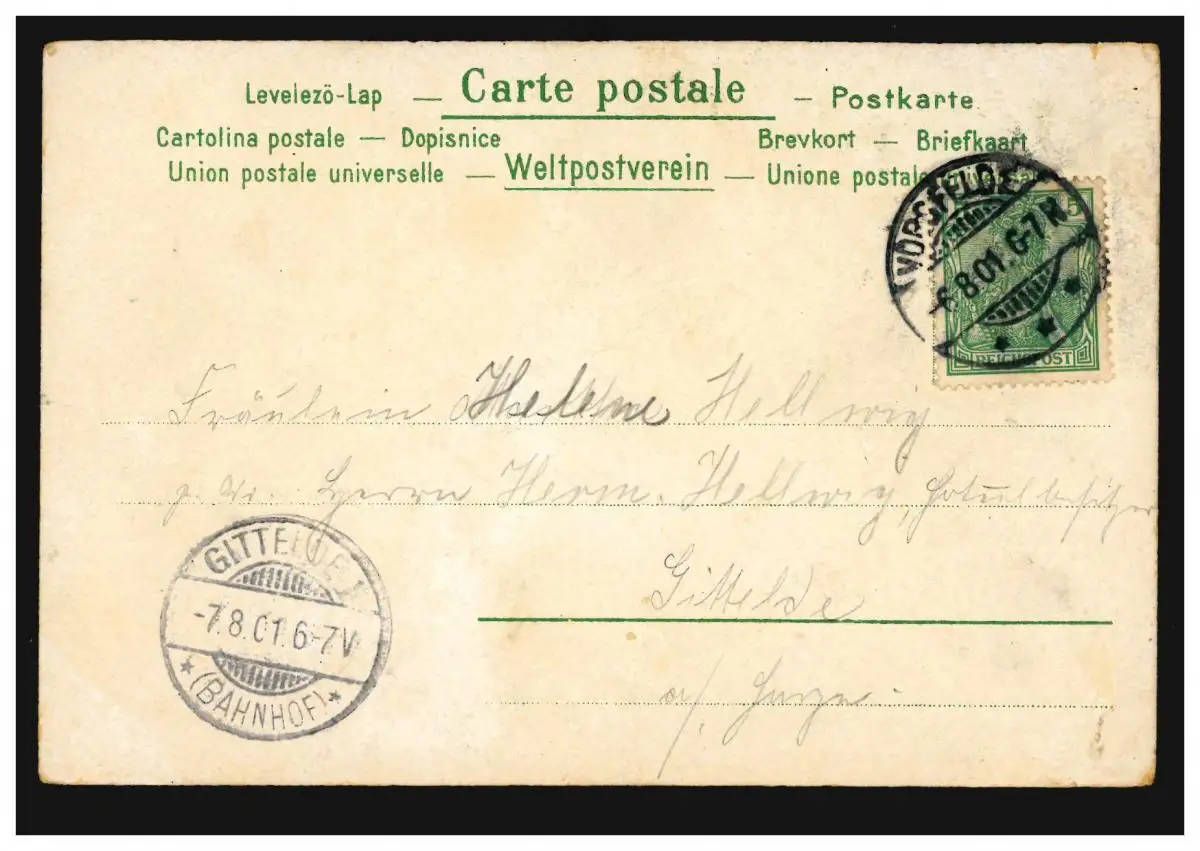 Levelezö-Lap — Carte postale — Postkarte
Cartolina postale — Dopisnice Brevkort — Briefkaart
Union postale universelle — Weltpostverein — Unione postale
VORSFELDE
-6.8.01. 6-7 N
5
REICHSPOST
Fräulein Helene Hellwig
Herrn Herm. Hellwig, Hotelbesitzer
Gittelde
a/ Harze.
GITTELDE 1
-7.8.01. 6-7V
* (BAHNHOF) *